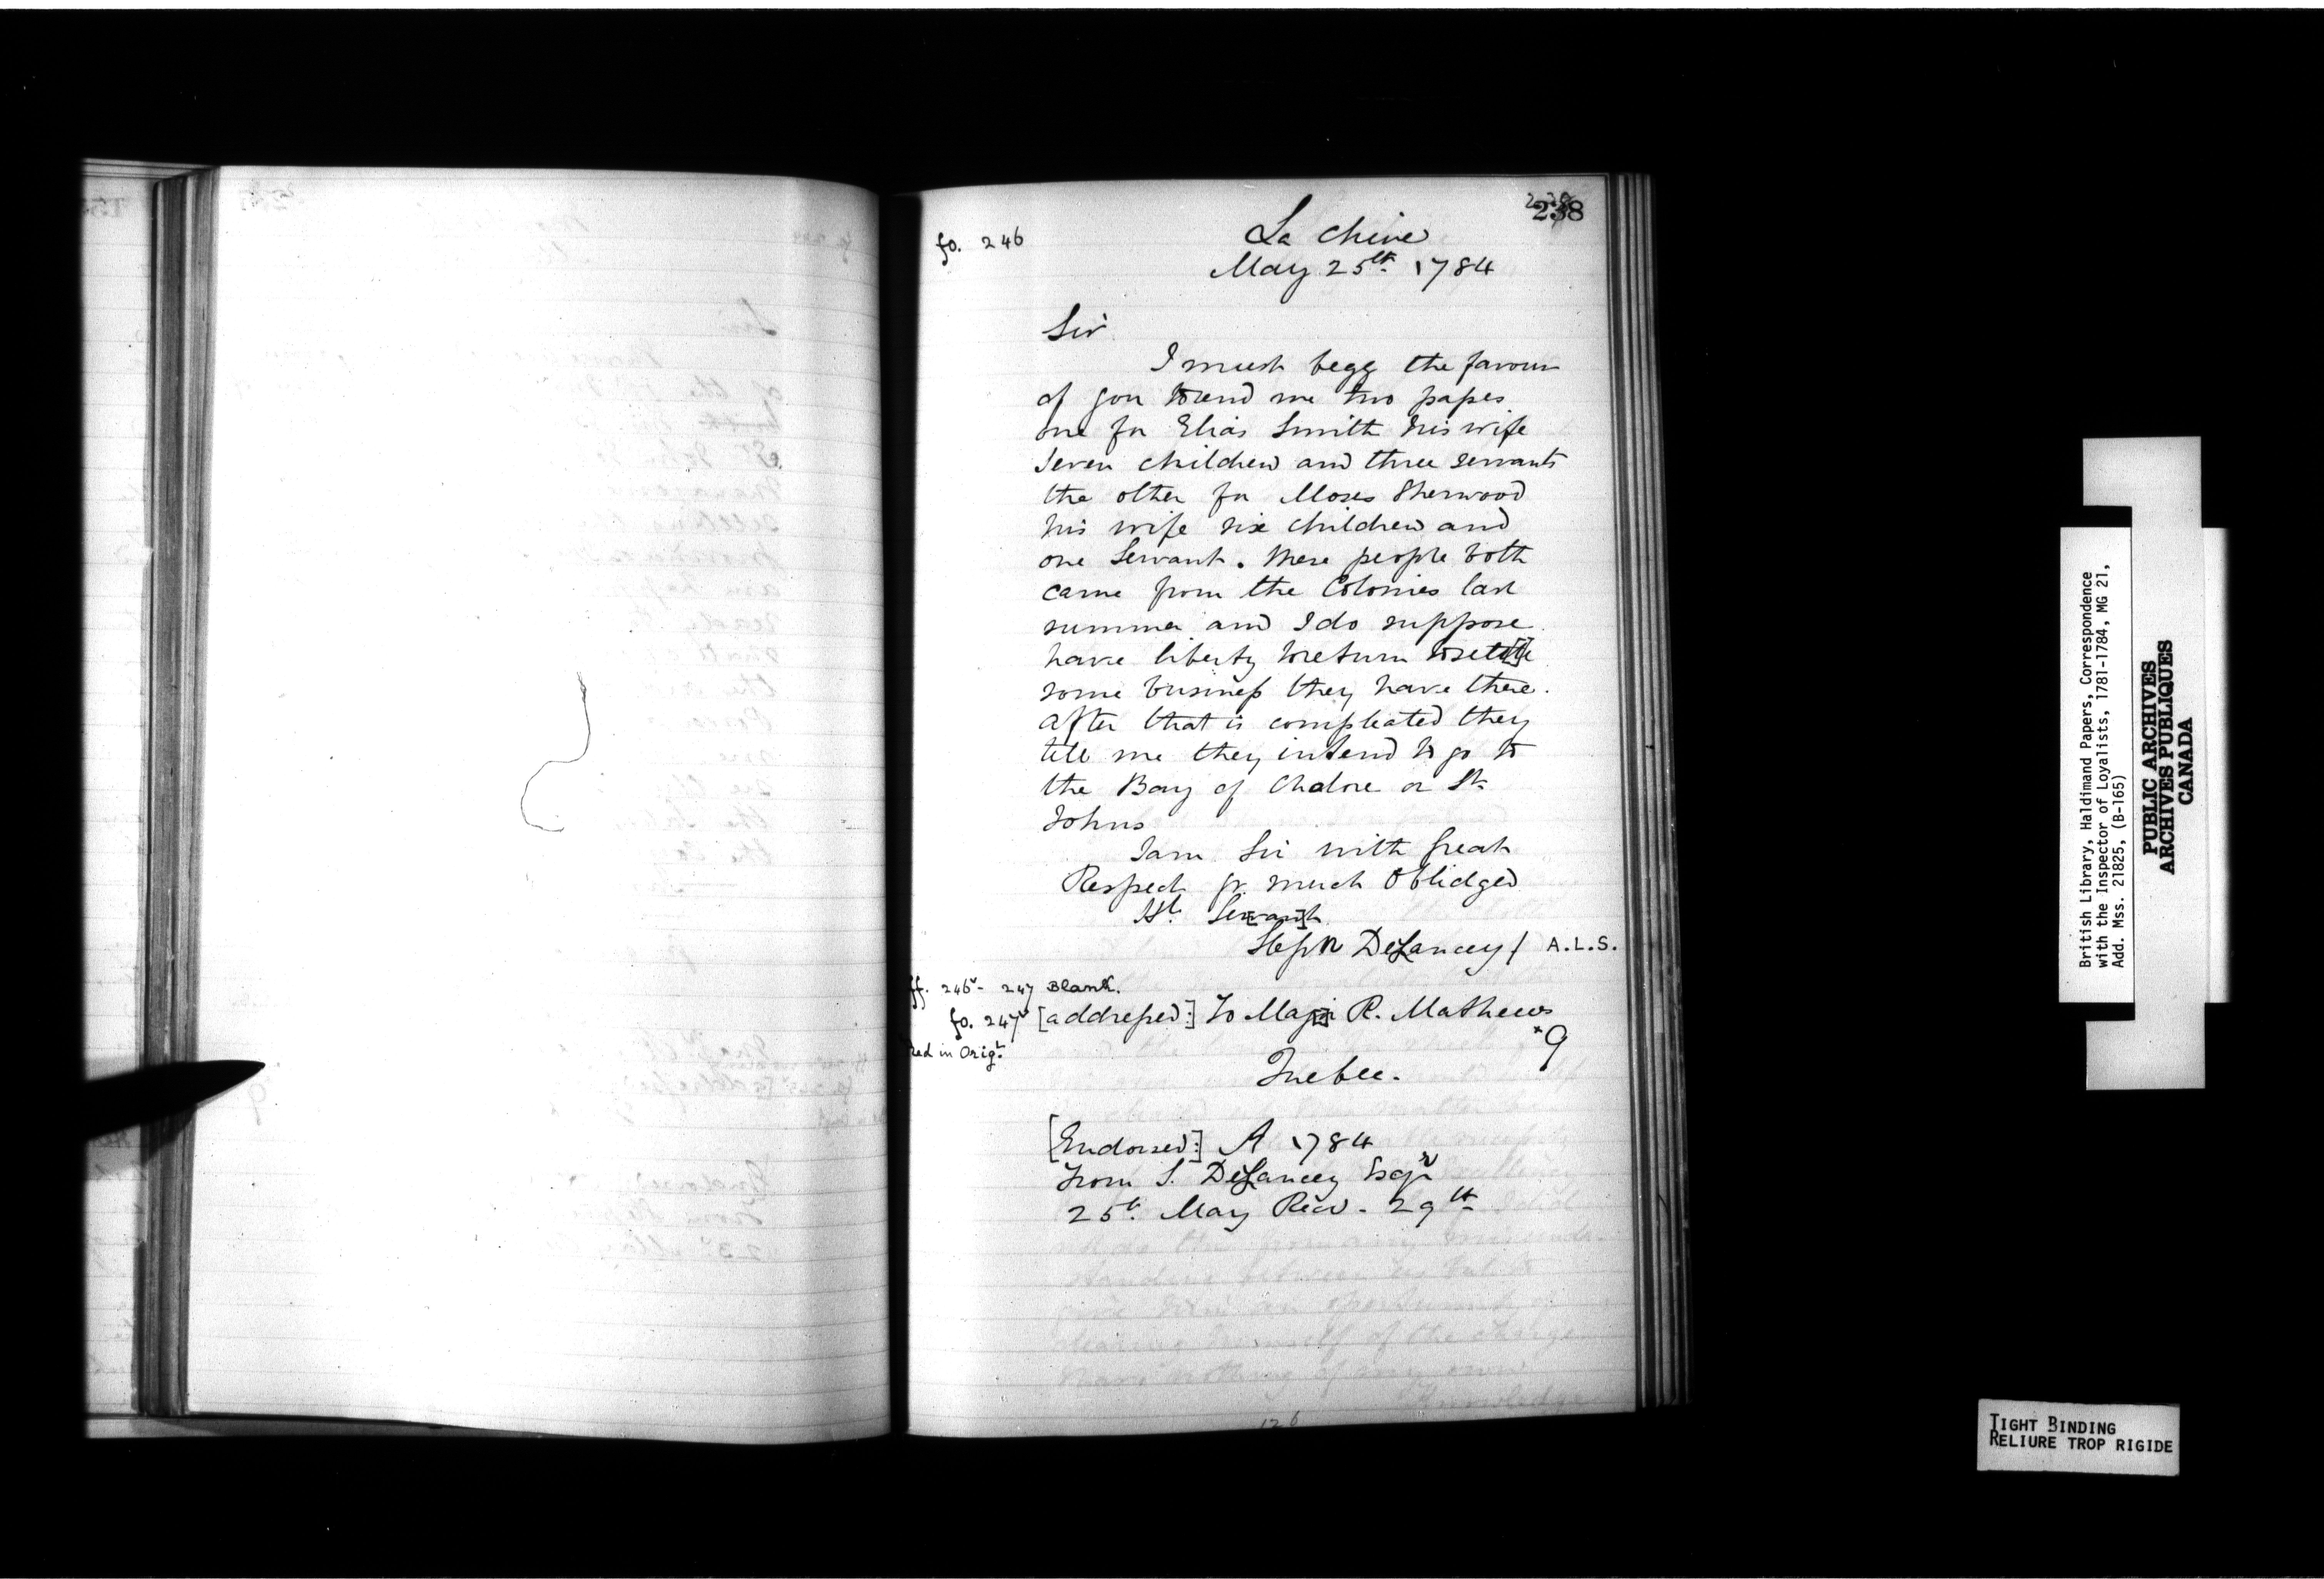 238
fo. 246
La Chine
May 25th 1784
Sir
I must begg the favour
of you to send me two passes
one for Elias Smith his wife
seven children and three servants
the other for Moses Sherwood
his wife six children and
one Servant. These people both
came from the Colonies last
summer and I do suppose
have liberty to return to sett[l]e
some business they have there.
after that is compleated they
tell me they intend to go to
the Bay of Chalore or St.
Johns
I am Sir with great
Respect yr. much Oblidged
Ht. Se[rvan]t
Steph DeLancey / A.L.S.
ff. 246v - 247 Blank.
fo. 247v [addressed:] To Maj[r] R. Mathews
+9
Red in Origl.
Quebec.
[Endorsed:] A 1784
From S. DeLancey Esqr
25th. May Recd. 29th
126
British Library, Haldimand Papers, Correspondence
with the Inspector of Loyalists, 1781-1784, MG 21,
Add. Mss. 21825, (B-165)
PUBLIC ARCHIVES
ARCHIVES PUBLIQUES
CANADA
TIGHT BINDING
RELIURE TROP RIGIDE